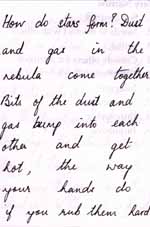 How do stars form? Dust
and gas in the
nebula come together.
Bits of the dust and
gas bump into each
other and get
hot, the way
your hands do
if you rub them hard